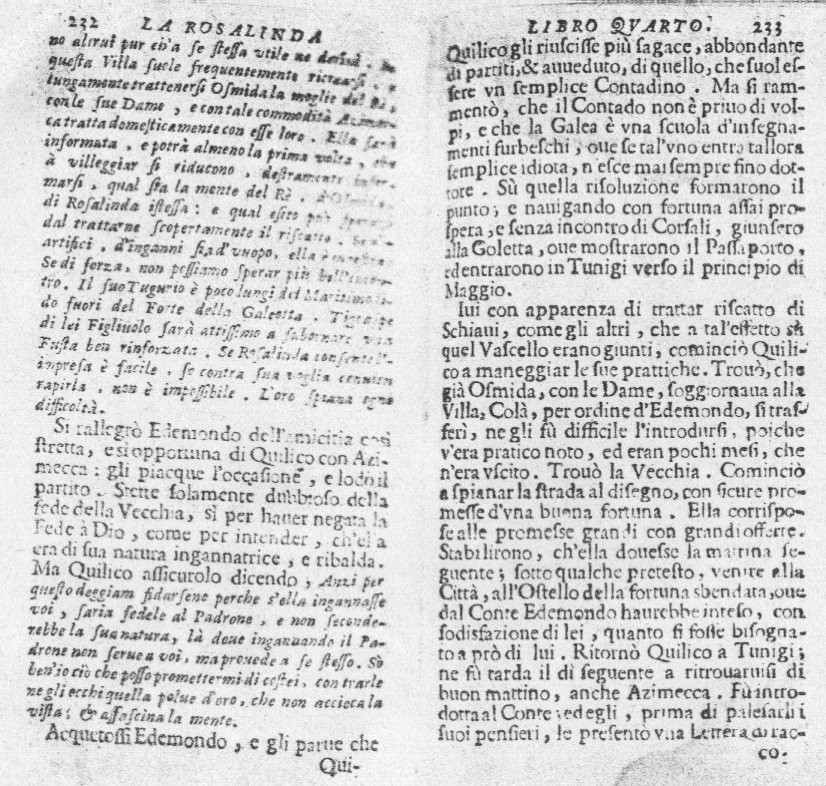 232 LA ROSALINDA
no altrui pur ch'a se stessa vtile ne
questa Villa suole frequentemente ricrearsi, e
lungamente trattenersi Osmida la moglie del Rè,
con le sue Dame, e con tale commodità Azimec-
ca tratta domesticamente con esse loro. Ella sarà
informata, e potrà almeno la prima volta, che
à villeggiar si riducono, destramente infor-
marsi, qual sia la mente del Rè,
di Rosalinda istessa: e qual esito può
dal trattarne scopertamente il riscatto. Se d'
artifici, d'inganni sia d'vuopo, ella è
Se di forza, non possiamo sperar più bell'incon-
tro. Il suo Tugurio è poco lungi del Maritimo li-
do fuori del Forte della Galeotta.
di lei Figliuolo sarà attissimo a subornare vna
Fusta ben rinforzata. Se Rosalinda consente l'-
impresa è facile, se contra sua voglia conuien
rapirla, non è impossibile. L'oro spiana ogni
difficoltà.
Si rallegrò Edemondo dell'amicitia così
stretta, e sì opportuna di Quilico con Azi-
mecca: gli piacque l'occasione, e lodo il
partito. Stette solamente dubbioso della
fede della Vecchia, sì per hauer negata la
Fede à Dio, come per intender, ch'ella
era di sua natura ingannatrice, e ribalda.
Ma Quilico assicurolo dicendo, Anzi per
questo deggiam fidarsene perche s'ella ingannasse
voi, saria fedele al Padrone, e non seconde-
rebbe la sua natura, là doue ingannando il Pa-
drone non serue a voi, ma prouede a se stesso. Sò
ben'io ciò che posso promettermi di costei, con trarle
ne gli occhi quella polue d'oro, che non accieca la
vista; & affascina la mente.
Acquetossi Edemondo, e gli parue che
Qui-
LIBRO QVARTO. 233
Quilico gli riuscisse più sagace, abbondante
di partiti, & auueduto, di quello, che suol es-
sere vn semplice Contadino. Ma si ram-
mentò, che il Contado non è priuo di vol-
pi, e che la Galea è vna scuola d'insegna-
menti furbeschi, oue se tal'vno entra tallora
semplice idiota, n'esce mai sempre fino dot-
tore. Sù quella risoluzione formarono il
punto; e nauigando con fortuna assai pro-
spera, e senza incontro di Corsali, giunsero
alla Goletta, oue mostrarono il Passaporto,
ed entrarono in Tunigi verso il principio di
Maggio.
Iui con apparenza di trattar riscatto di
Schiaui, come gli altri, che a tal'effetto sù
quel Vascello erano giunti, cominciò Quili-
co a maneggiar le sue prattiche. Trouò, che
già Osmida, con le Dame, soggiornaua alla
Villa, Colà, per ordine d'Edemondo, si tras-
ferì, ne gli fù difficile l'introdursi, poiche
v'era pratico noto, ed eran pochi mesi, che
n'era vscito. Trouò la Vecchia. Cominciò
a spianar la strada al disegno, con sicure pro-
messe d'vna buona fortuna. Ella corrispo-
se alle promesse grandi con grandi offerte.
Stabilirono, ch'ella douesse la mattina se-
guente; sotto qualche pretesto, venire alla
Città, all'Ostello della fortuna sbendata, oue
dal Conte Edemondo haurebbe inteso, con
sodisfazione di lei, quanto si fosse bisogna-
to a prò di lui. Ritornò Quilico a Tunigi;
ne fù tarda il dì seguente a ritrouaruisi di
buon mattino, anche Azimecca. Fù intro-
dotta al Conte; ed egli, prima di palesarli i
suoi pensieri, le presentò vna Lettera di rac-
co-